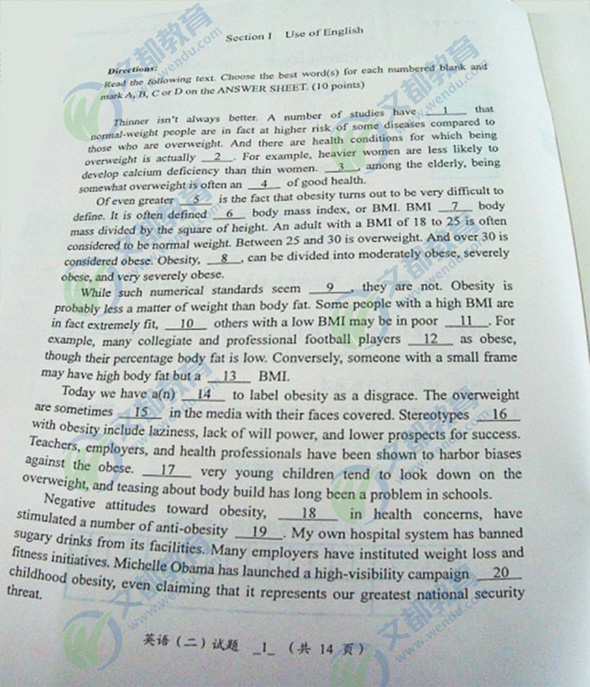 Section I Use of English
Directions:
Read the following text. Choose the best word(s) for each numbered blank and
mark A, B, C or D on the ANSWER SHEET. (10 points)
Thinner isn't always better. A number of studies have 1 that
normal-weight people are in fact at higher risk of some diseases compared to
those who are overweight. And there are health conditions for which being
overweight is actually 2 . For example, heavier women are less likely to
develop calcium deficiency than thin women. 3 , among the elderly, being
somewhat overweight is often an 4 of good health.
Of even greater 5 is the fact that obesity turns out to be very difficult to
define. It is often defined 6 body mass index, or BMI. BMI 7 body
mass divided by the square of height. An adult with a BMI of 18 to 25 is often
considered to be normal weight. Between 25 and 30 is overweight. And over 30 is
considered obese. Obesity, 8 , can be divided into moderately obese, severely
obese, and very severely obese.
While such numerical standards seem 9 , they are not. Obesity is
probably less a matter of weight than body fat. Some people with a high BMI are
in fact extremely fit, 10 others with a low BMI may be in poor 11 . For
example, many collegiate and professional football players 12 as obese,
though their percentage body fat is low. Conversely, someone with a small frame
may have high body fat but a 13 BMI.
Today we have a(n) 14 to label obesity as a disgrace. The overweight
are sometimes 15 in the media with their faces covered. Stereotypes 16
with obesity include laziness, lack of will power, and lower prospects for success.
Teachers, employers, and health professionals have been shown to harbor biases
against the obese. 17 very young children tend to look down on the
overweight, and teasing about body build has long been a problem in schools.
Negative attitudes toward obesity, 18 in health concerns, have
stimulated a number of anti-obesity 19 . My own hospital system has banned
sugary drinks from its facilities. Many employers have instituted weight loss and
fitness initiatives. Michelle Obama has launched a high-visibility campaign 20
childhood obesity, even claiming that it represents our greatest national security
threat.
英语（二）试题 _1_ （共 14 页）
文都教育
www.wendu.com